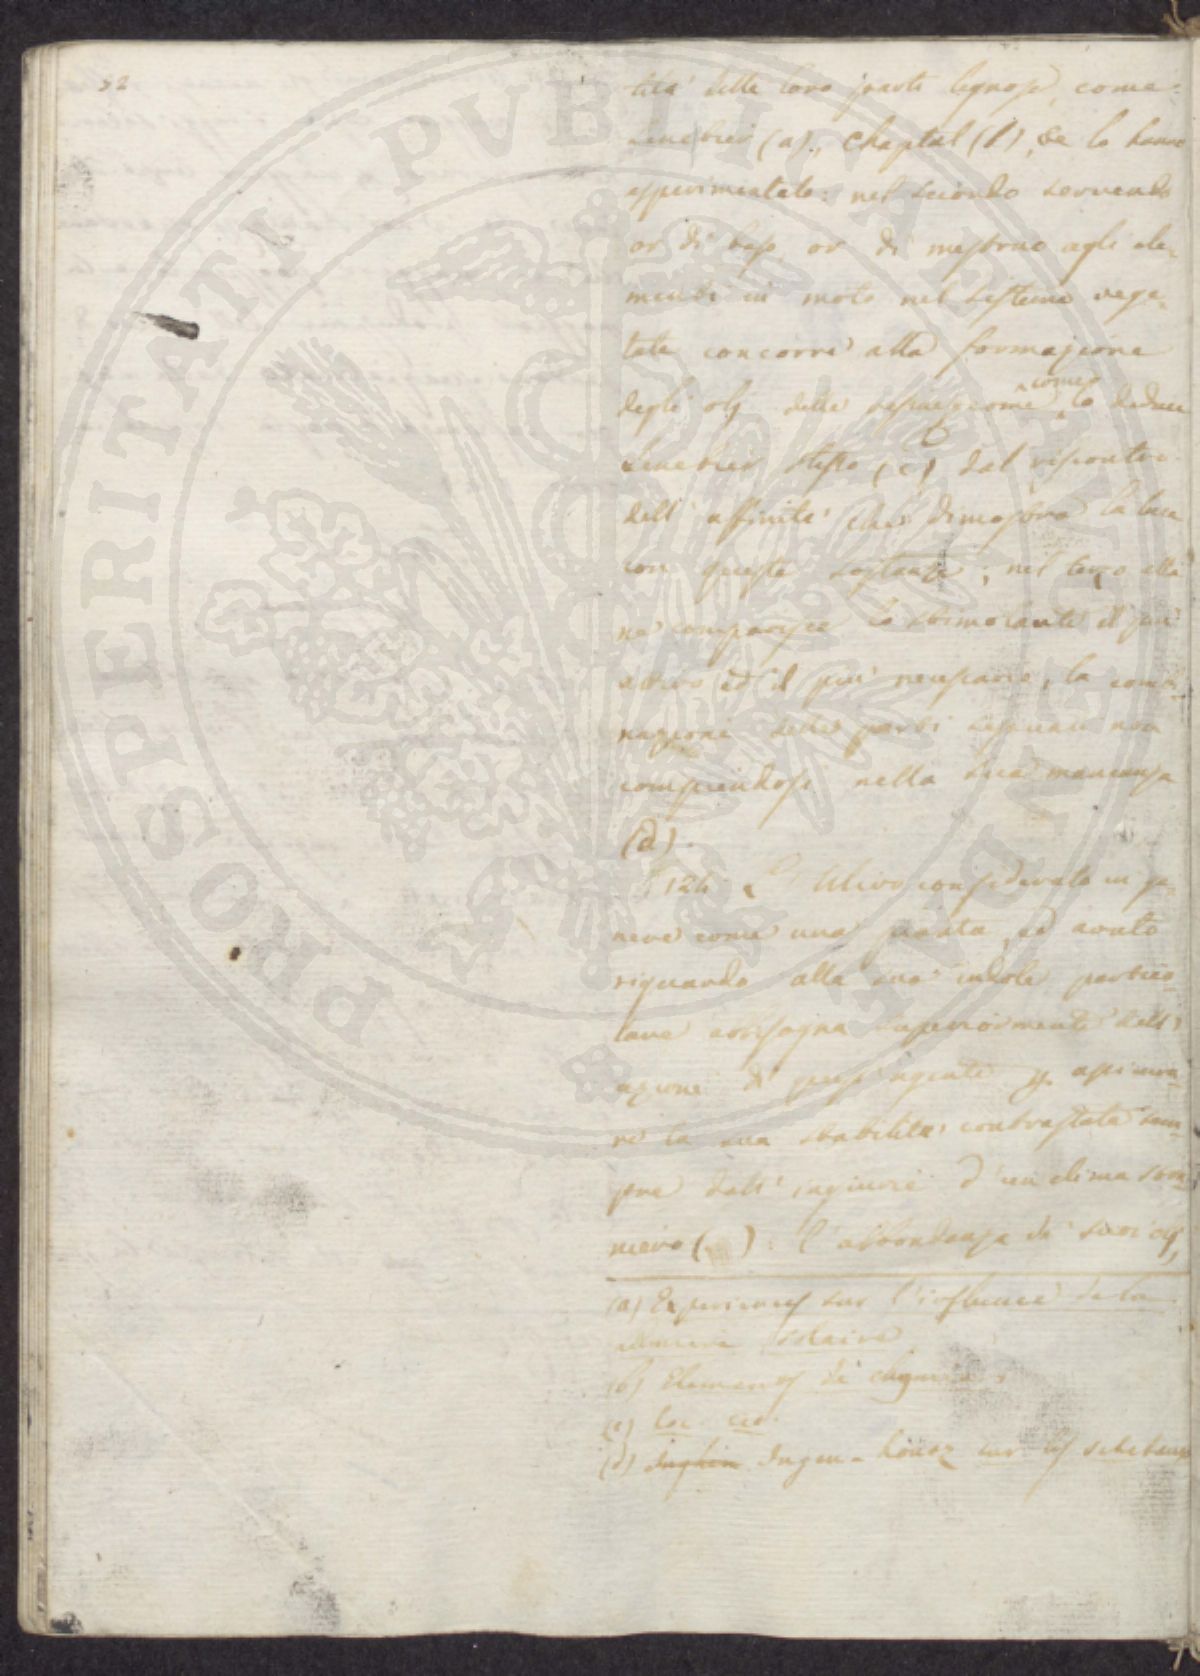 52
tità delle loro parti legnose, come
Senebier (a), Chaptal (b), se lo hanno
esperimentato: nel secondo servendo
or di base, or di mestruo agli ele-
menti in moto nel sistema vege-
tale concorre alla formazione
degli olj delle come lo deduce
Senebier stesso (c) dal riscontro
dell' affinità che dimostra la luce
con queste sostanze; nel terzo ella
ne comparisce lo stimolante il più
attivo ed il più necessario, la combi-
nazione delle parti non
compiendosi nella sua mancanza
(d).
124 L' Ulivo considerato in ge-
nere come una pianta, ed avuto
riguardo alla sua indole partico-
lare abbisogna superiormente dell'
azione di assicura-
re la sua stabilità contrastata sem-
pre dall' ingiurie d' un clima stra-
niero ( ): l' abbondanza di suoi olj,
(a) Experiences sur l' influence de la
lumiere solaire
(b) Elemens de chymie.
(c) loc. cit.
(d) Ingen-housz sur les
PROSPERITATI PVBLICAE AVGENDAE